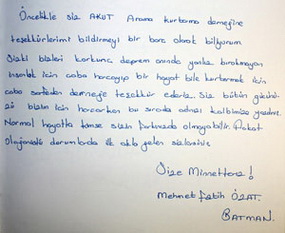 Öncelikle siz AKUT Arama kurtarma derneğine
teşekkürlerimi bildirmeyi bir borç olarak biliyorum
Sizki bizleri korkunç deprem anında yanlız bırakmayan
insanlık için çaba harcayıp bir hayat bile kurtarmak için
çaba sarfeden derneğe teşekkür ederiz. Siz bütün gücünü-
zü bizim için harcarken bu sırada adınızı kalbimize yazdınız.
Normal hayatta kimse sizin farkınızda olmayabilir. Fakat
Olağanüstü durumlarda ilk akla gelen sizlersiniz
Size Minnettarız!
Mehmet Fatih ÖZAT.
BATMAN.